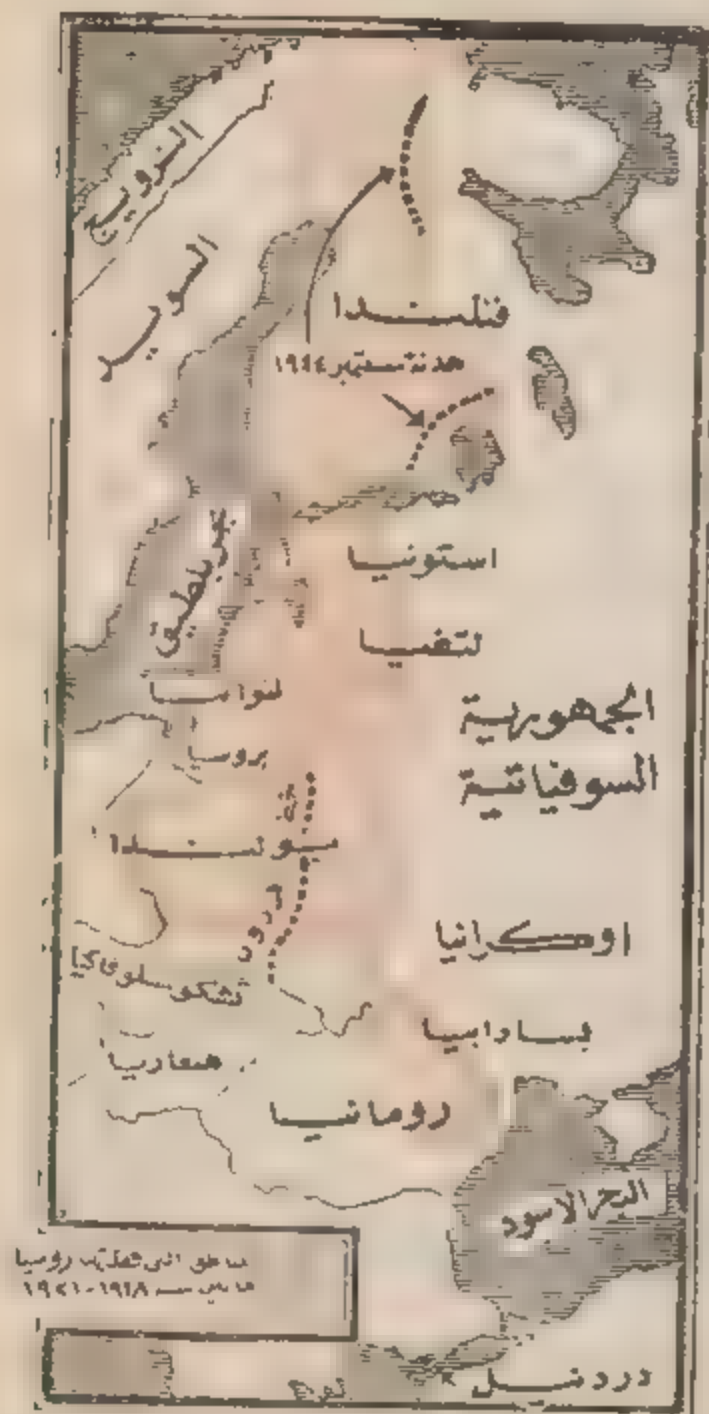 النرويج
السويد
فنلندا
هدنة سبتمبر ١٩٤٤
استونيا
بحر بلطيق
لتفيا
لتوانيا
الجمهورية
السوفياتية
بروسيا
خط
بولندا
كرزون
اوكرانيا
تشكوسلوفاكيا
بسارابيا
هنغاريا
رومانيا
البحر الاسود
مناطق التي روسيا
١٩١٨-١٩٢١
دردنيل